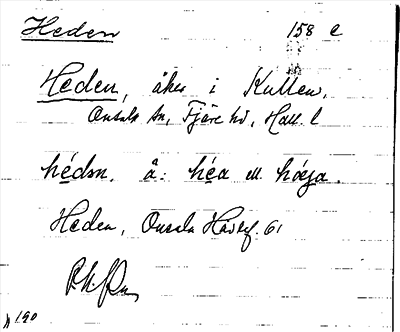 Heden 158 e
Heden, åker i Kullen,
Onsala sn, Fjäre hd, Hall. l
hédən. å: héa ell. hǿga.
Heden, Onsala Häst f. 61
A 190